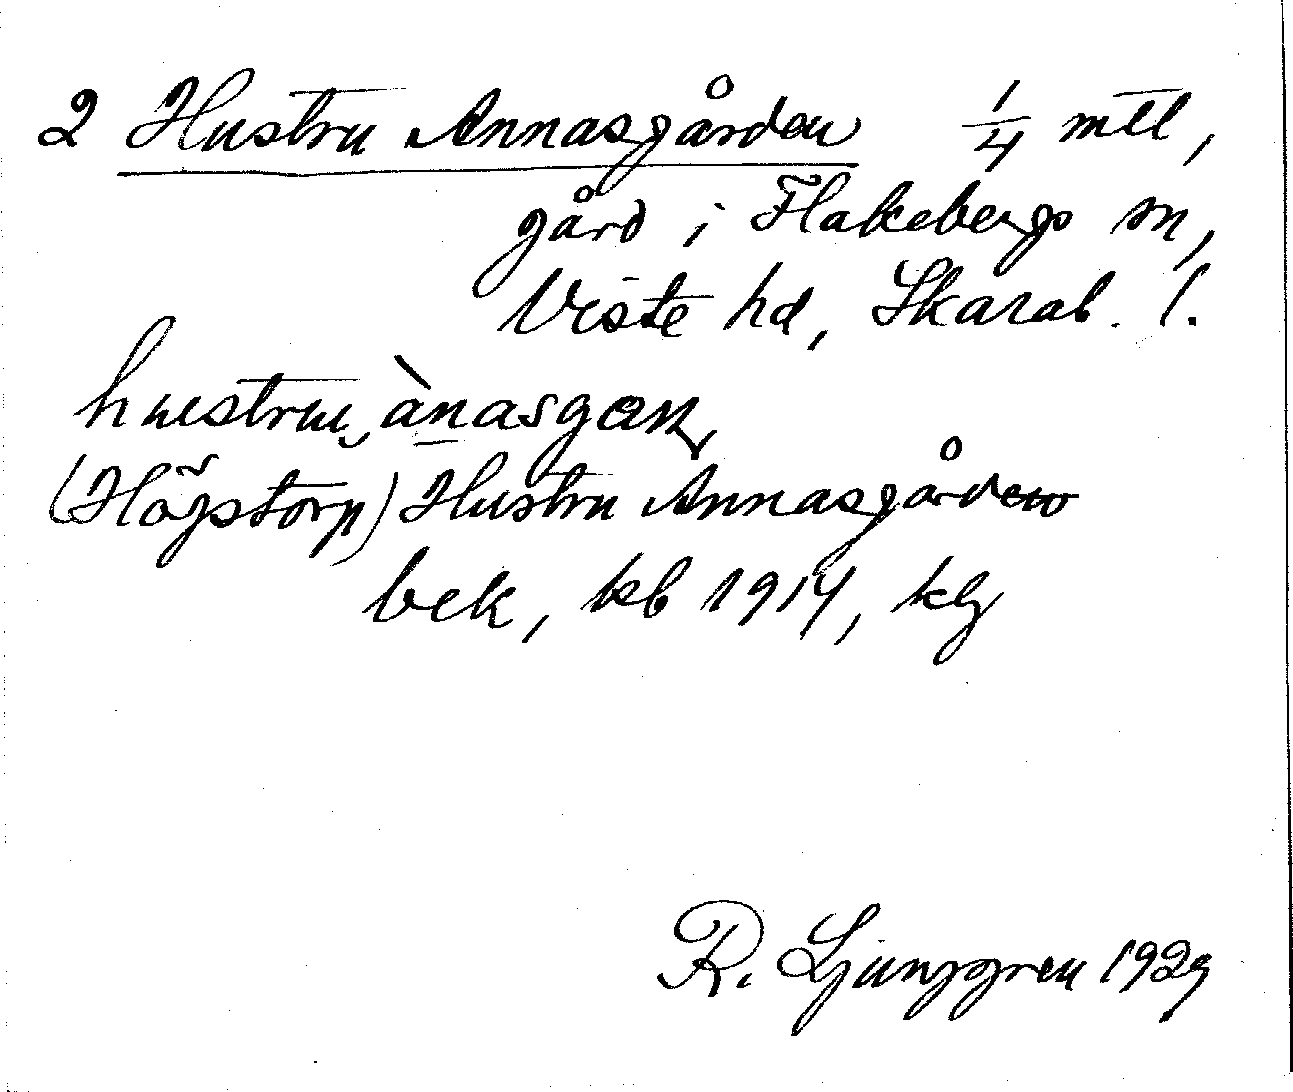 2 Hustru Annasgården 1/4 mtl,
gård i Flakebergs sn,
Viste hd, Skarab. l.
hustru ànasgaɳ
(Högstorp) Hustru Annasgården
bek, kb 1914, kg
R. Ljunggren 1929